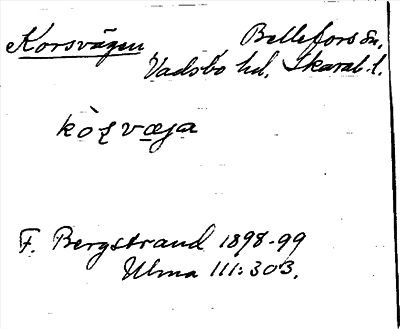 Korsvägen Bellefors sn.
Vadsbo hd. Skarab. l.
kòʂvæja
F. Bergstrand 1898-99
Ulma 111:303.